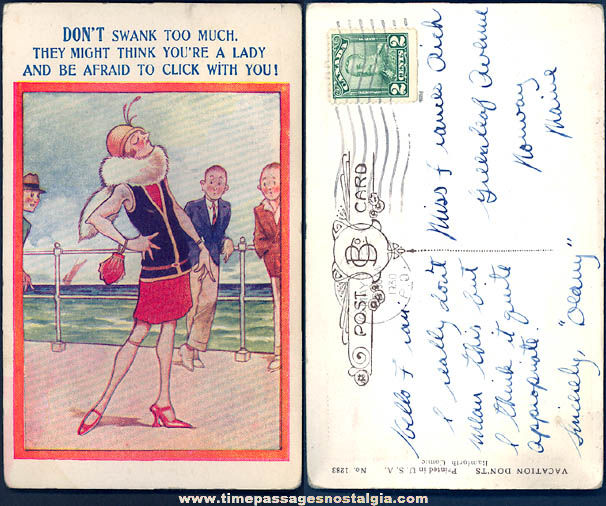 DON'T SWANK TOO MUCH.
THEY MIGHT THINK YOU'RE A LADY
AND BE AFRAID TO CLICK WITH YOU!
CANADA
2 CENTS 2
POST CARD
Miss Frances Rich
Greenleaf Avenue
Norway
Maine
Hello Fran:
I really don't
mean this but
I think it quite
appropiate.
Sincerely, "Deany"
VACATION DON'TS
Rainforth Comic
Printed in U. S. A.
No. 1283
www.timepassagesnostalgia.com